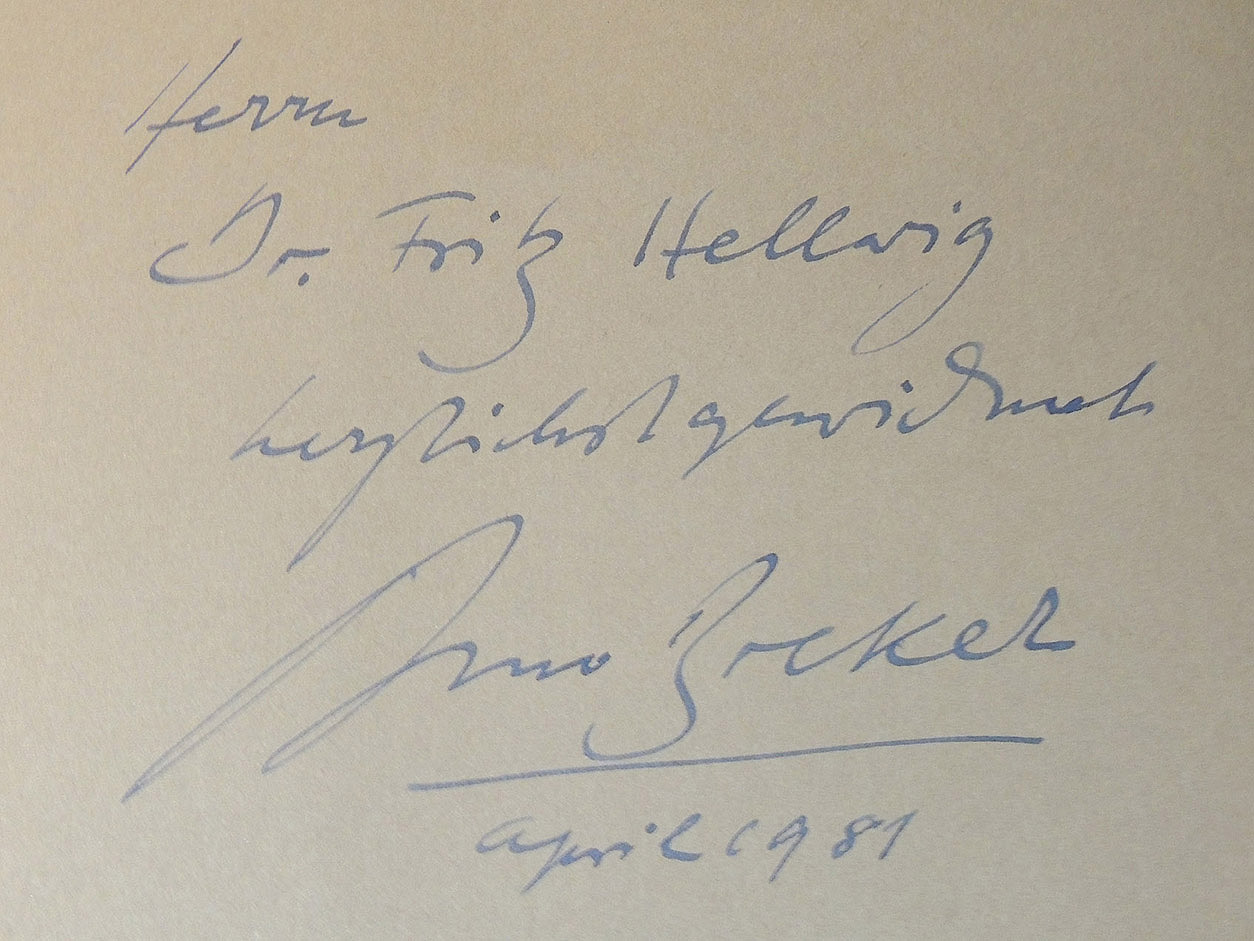 Herrn
Dr. Fritz Hellwig
herzlichst gewidmet
Arno Breker
April 1981